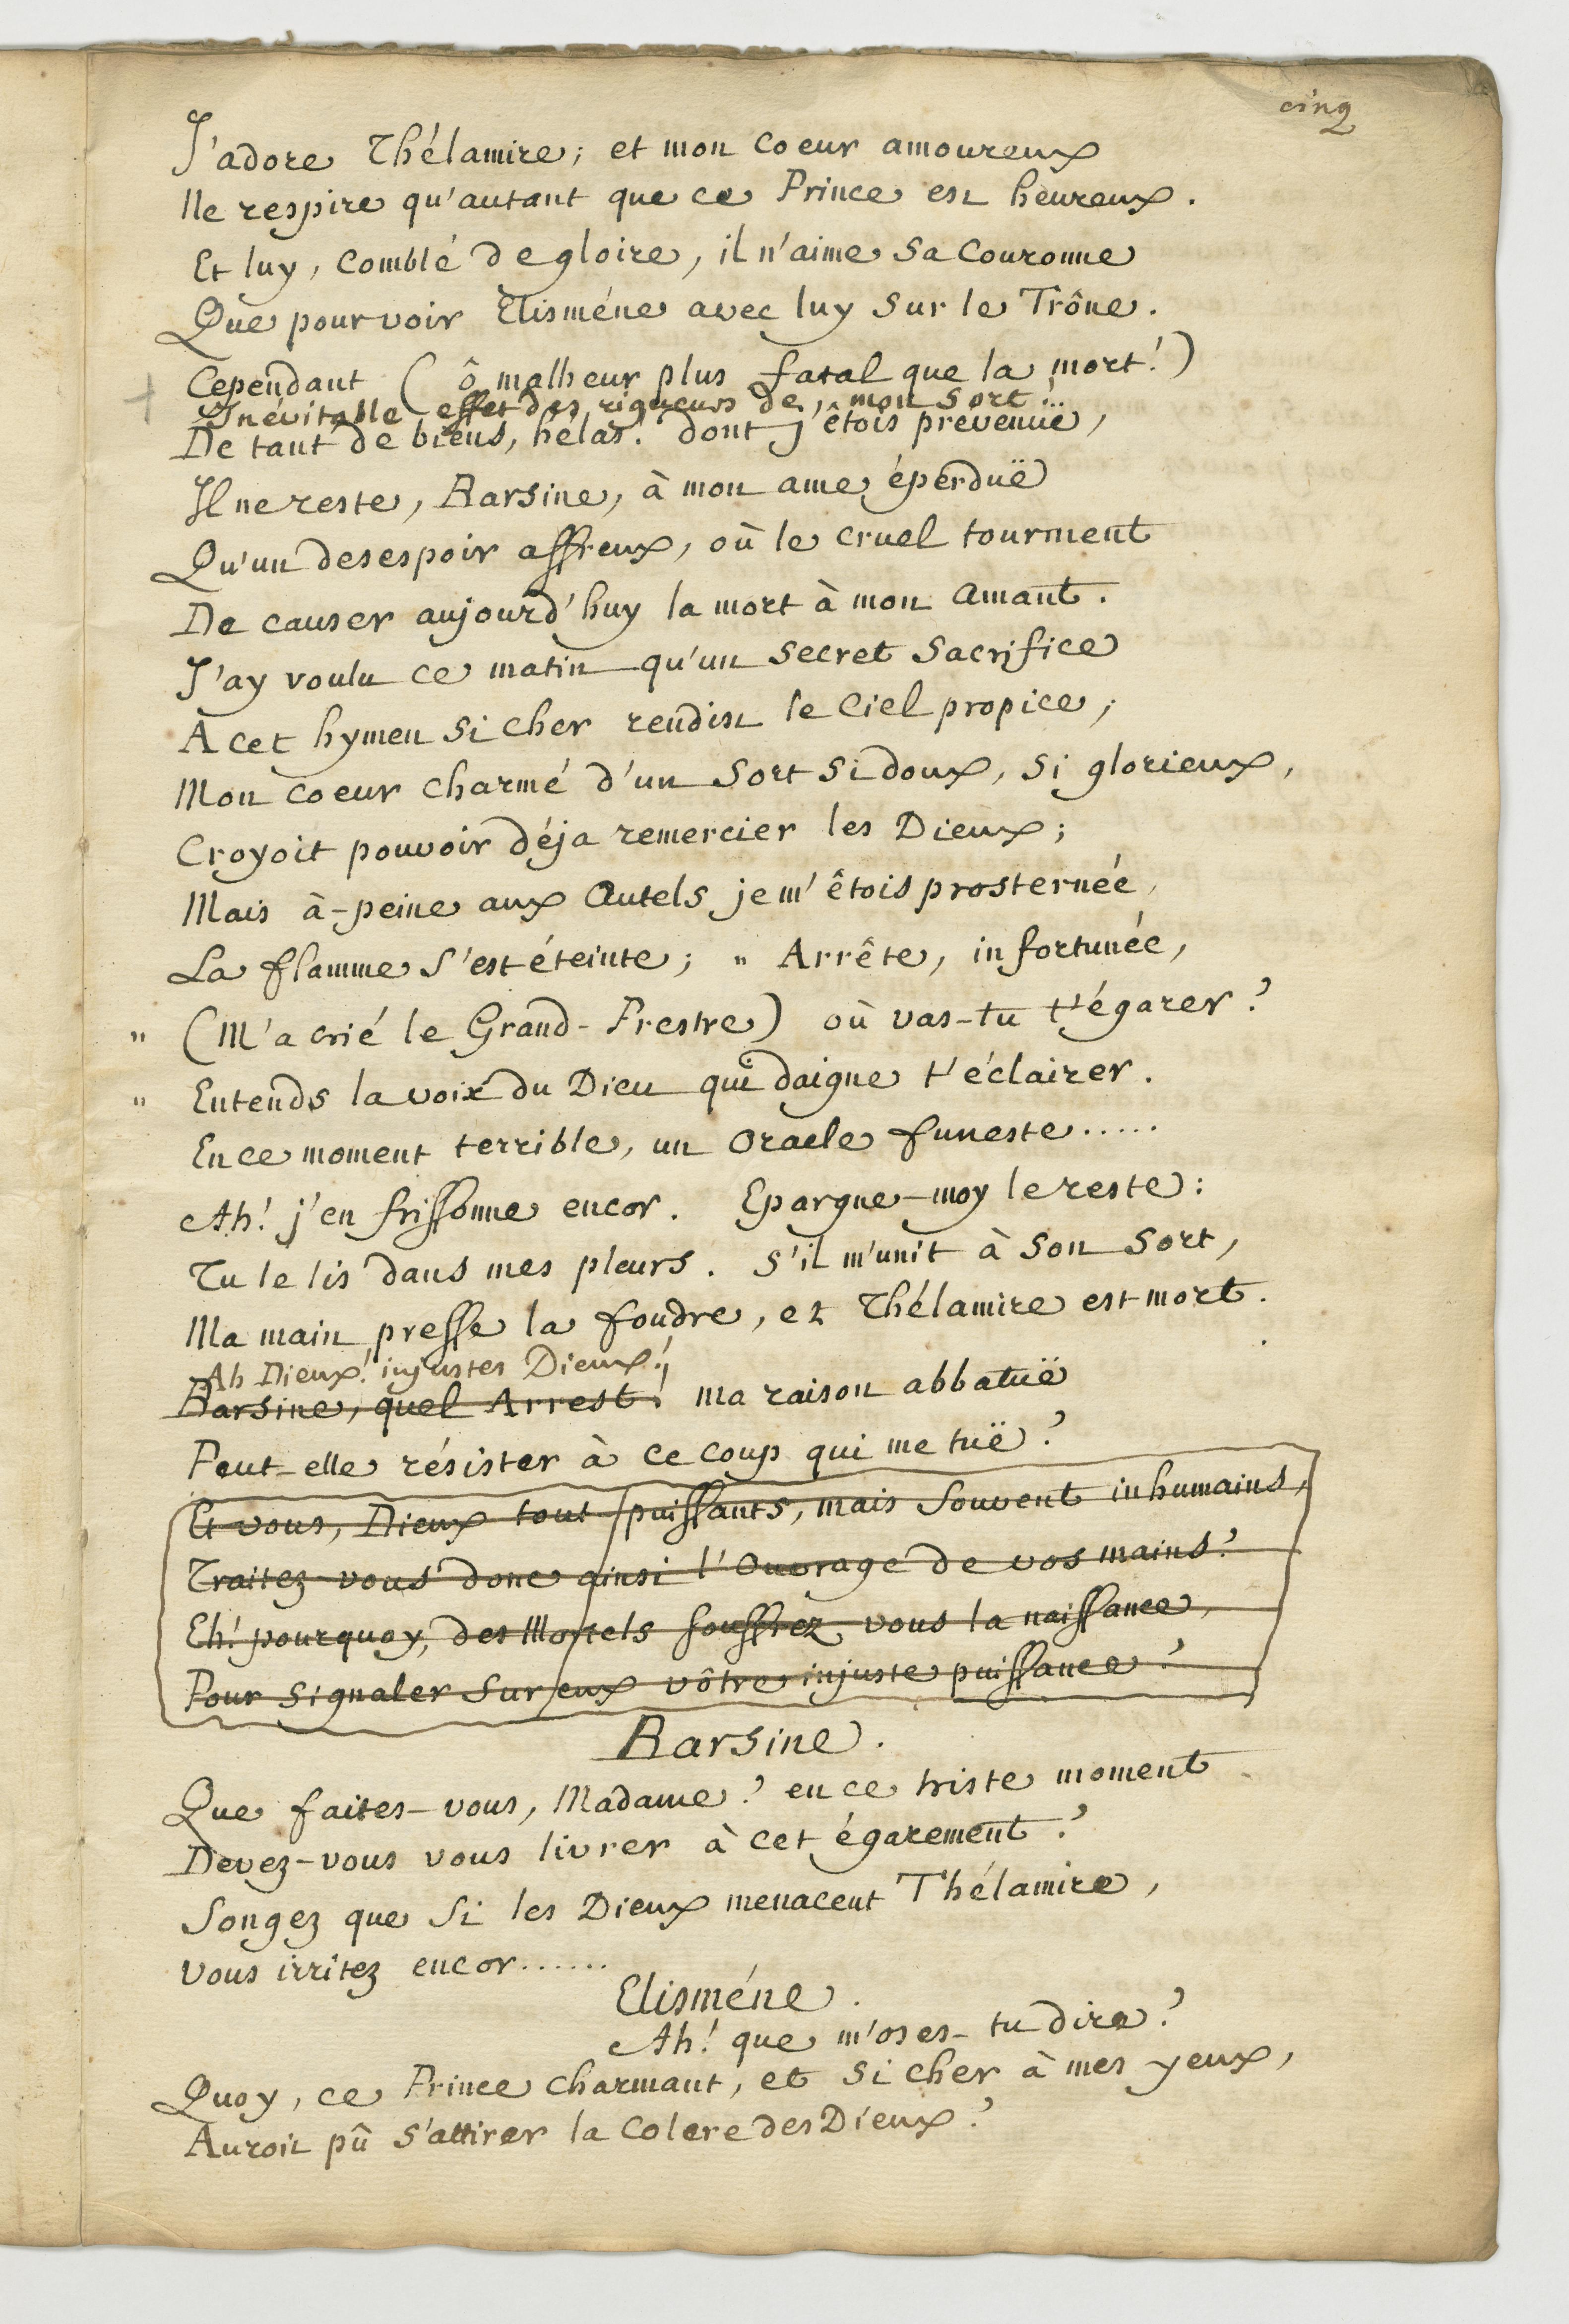 cinq
J'adore Thélamire; et mon coeur amoureux
Ne respire qu'autant que ce Prince est heureux.
Et luy, Comblé de gloire, il n'aime Sa Couronne
Que pour voir Elisméne avec luy Sur le Trône.
Cependant (ô malheur plus fatal que la mort!)
Inévitable effet des rigueurs de mon Sort...
De tant de biens, hélas! dont j'êtois prévenuë,
Il ne reste, Barsine, à mon ame éperduë
Qu'un desespoir affreux, où le cruel tourment
De causer aujourd'huy la mort à mon Amant.
J'ay voulu ce matin qu'un Secret Sacrifice
A cet hymen Si cher rendist le Ciel propice;
Mon coeur charmé d'un Sort Si doux, Si glorieux,
Croyoit pouvoir déja remercier les Dieux;
Mais à-peine aux Autels je m'êtois prosternée,
La flamme S'est éteinte; " Arrête, infortunée,
" (M'a crié le Grand-Prestre) où vas-tu t'égarer?
" Entends la voix du Dieu qui daigne t'éclairer.
En ce moment terrible, un Oracle funeste.....
Ah! j'en frissonne encor. Epargne-moy le reste:
Tu le lis dans mes pleurs. S'il m'unit à Son Sort,
Ma main presse la foudre, et Thélamire est mort.
Ah Dieux! injustes Dieux!
Barsine, quel Arrest! ma raison abbatuë
Peut-elle résister à ce coup qui me tuë?
Et vous, Dieux tout puissants, mais Souvent inhumains,
Traitez-vous donc ainsi l'Ouvrage de vos mains?
Eh! pourquoy, des Mortels Souffrez vous la naissance,
Pour Signaler Sur eux vôtre injuste puissance?
Barsine.
Que faites-vous, Madame? en ce triste moment
Devez-vous vous livrer à cet égarement?
Songez que Si les Dieux menacent Thélamire,
Vous irritez encor......
Elisméne.
Ah! que m'oses-tu dire?
Quoy, ce Prince charmant, et Si cher à mes yeux,
Auroit pû S'attirer la Colere des Dieux?